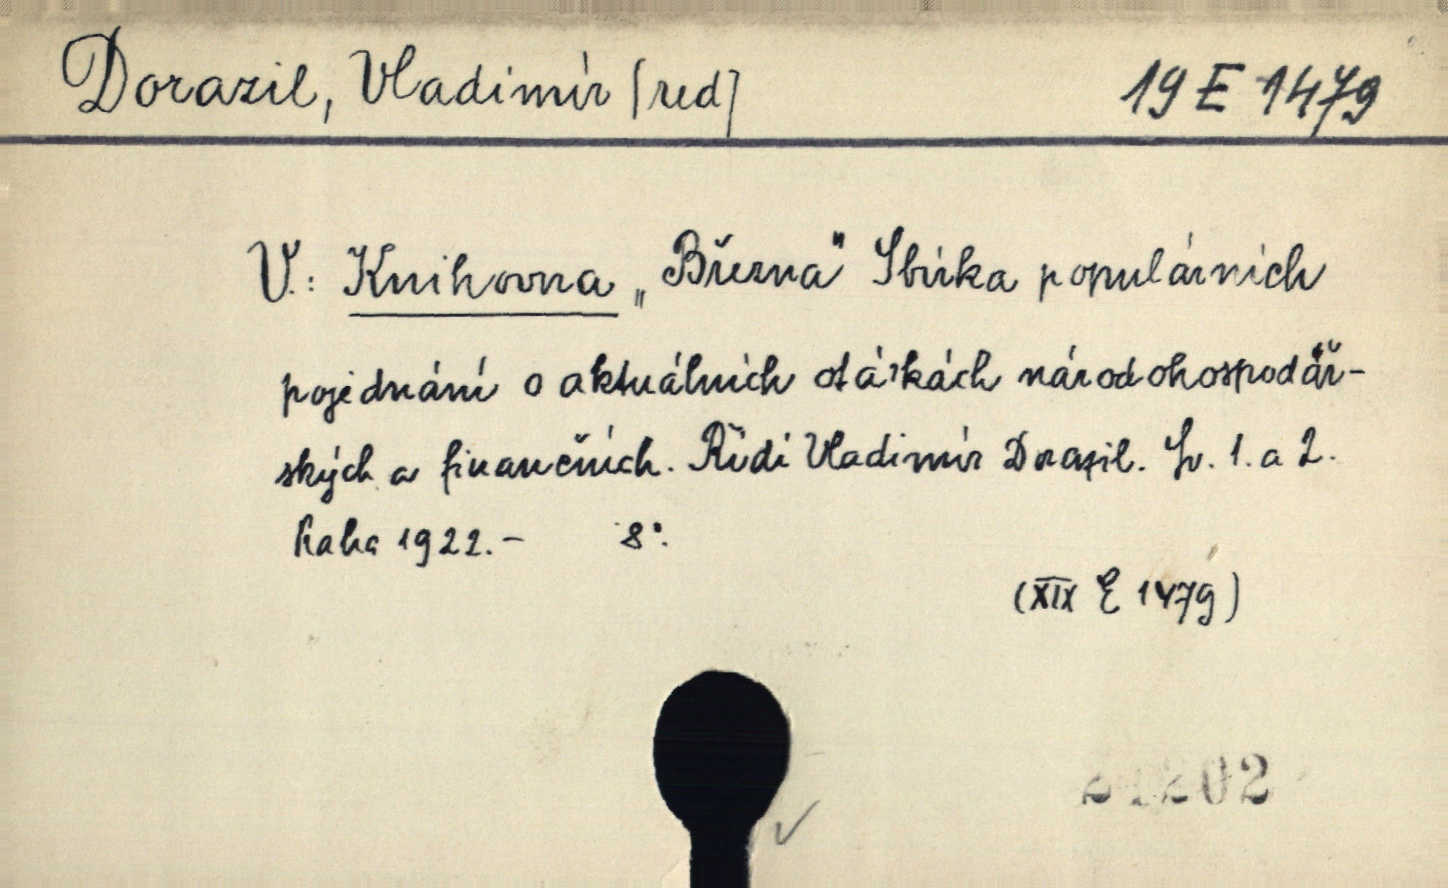 Dorazil, Vladimír [red] 19 E 1479
V.: Knihovna „Března" Sbírka populárních
pojednání o aktuálních otázkách národohospodář-
ských a finančních. Řídí Vladimír Dorazil. Sv. 1. a 2.
Praha 1922.- 8°.
(XIX E 1479)